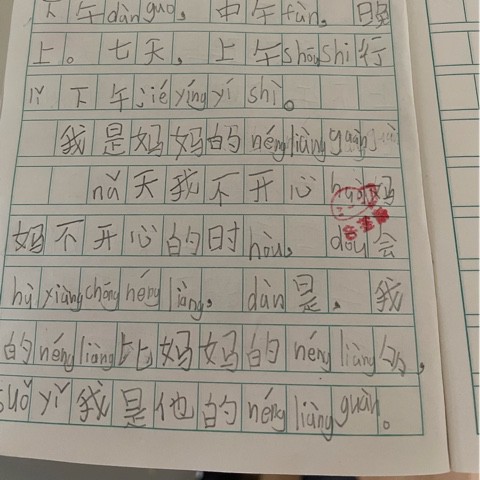 下午dàn guo，中午fàn，日
上。七天，上午shōu shi行
下午jié yíng yí shì。
我是妈妈的néng liàng guàn
nǎ天我不开心huò妈
妈不开心的时hòu，dōu会
hù xiàng chōng néng liàng，dàn是，我
的néng liàng比妈妈的néng liàng多，
suǒ yǐ我是他的néng liàng guàn。